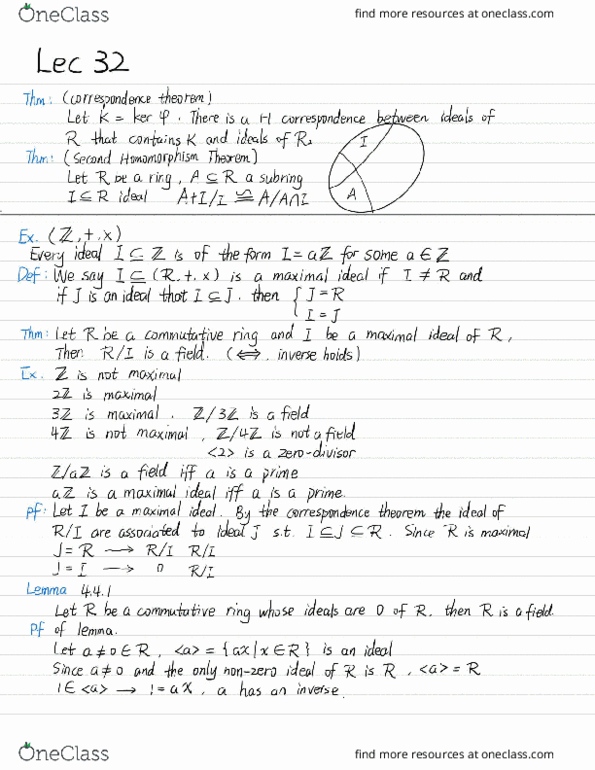 OneClass
find more resources at oneclass.com
Lec 32
Thm: (correspondence theorem)
Let K = ker φ. There is a 1-1 correspondence between ideals of
R that contains K and ideals of R₂
I
Thm: (Second Homomorphism Theorem)
Let R be a ring, A ⊆ R a subring
I ⊆ R ideal A+I/I ≅ A/A∩I
A
Ex. (ℤ, +, ×)
Every ideal I ⊆ ℤ is of the form I = aℤ for some a ∈ ℤ
Def: We say I ⊆ (R, +, ×) is a maximal ideal if I ≠ R and
if J is an ideal that I ⊆ J, then { J = R
I = J
Thm: Let R be a commutative ring and I be a maximal ideal of R,
Then R/I is a field. (⟺, inverse holds)
Ex. ℤ is not maximal
2ℤ is maximal
3ℤ is maximal. ℤ/3ℤ is a field
4ℤ is not maximal, ℤ/4ℤ is not a field
<2> is a zero-divisor
ℤ/aℤ is a field iff a is a prime
aℤ is a maximal ideal iff a is a prime.
pf: Let I be a maximal ideal. By the correspondence theorem the ideal of
R/I are associated to ideal J s.t. I ⊆ J ⊆ R. Since R is maximal
J = R → R/I R/I
J = I → 0 R/I
Lemma 4.4.1
Let R be a commutative ring whose ideals are 0 of R, then R is a field.
Pf of lemma.
Let a ≠ 0 ∈ R, <a> = {ax | x ∈ R} is an ideal
Since a ≠ 0 and the only non-zero ideal of R is R, <a> = R
1 ∈ <a> → 1 = ax, a has an inverse.
OneClass
find more resources at oneclass.com